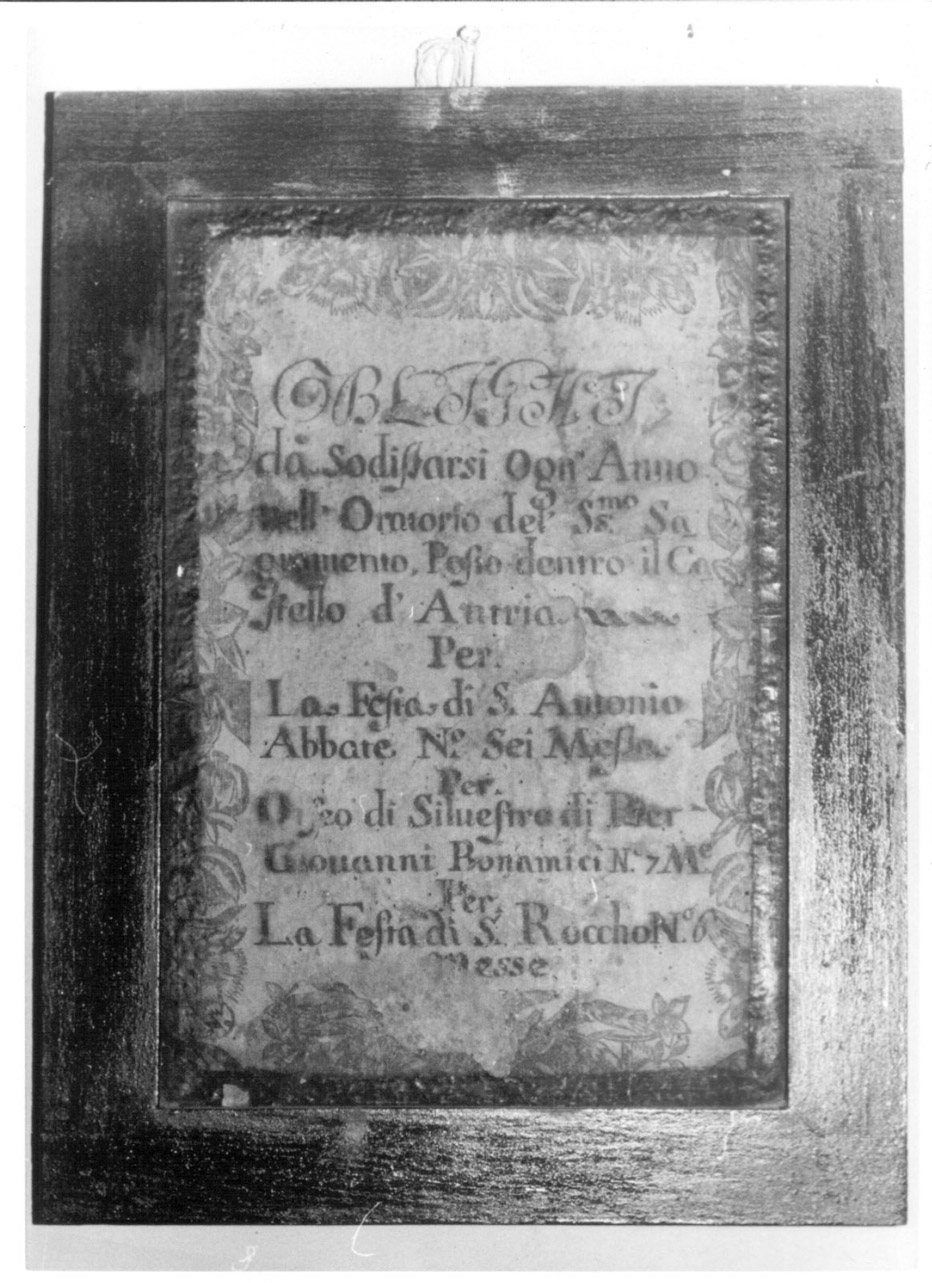 OBLIGHI
da Sodisfarsi Ogn' Anno
nell' Oratorio del SS.mo Sa
gramento, Posto dentro il Ca
stello d' Antria
Per.
La Festa di S. Antonio
Abbate N.º Sei Messe
Per.
di Siluestro di Pier
Giouanni Bonamici N.º 7 M.e
Per.
La Festa di S. Roccho N.º 6
Messe